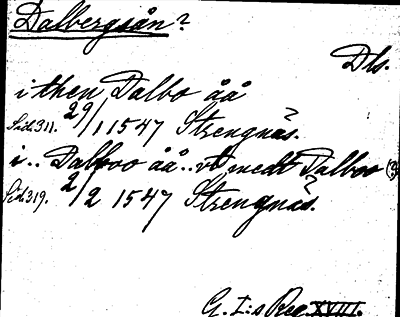 Dalbergsån?
Dls.
i then Dalbo åå
Sid. 311. 29/1 1547 Strengnäs.
i.. Dalboo åå.. vt medt Dalboo (?)
Sid. 319. 2/2 1547 Strengnäs.
G. I:s Reg. XVIII.